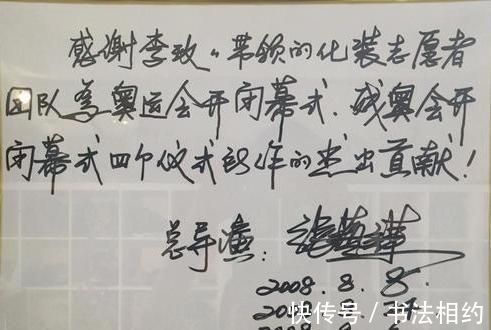 感谢李玫带领的化装志愿者
团队为奥运会开闭幕式、残奥会开
闭幕式四个仪式所作的杰出贡献！
总导演：张艺谋
2008.8.8.
快传号 / 书法相约